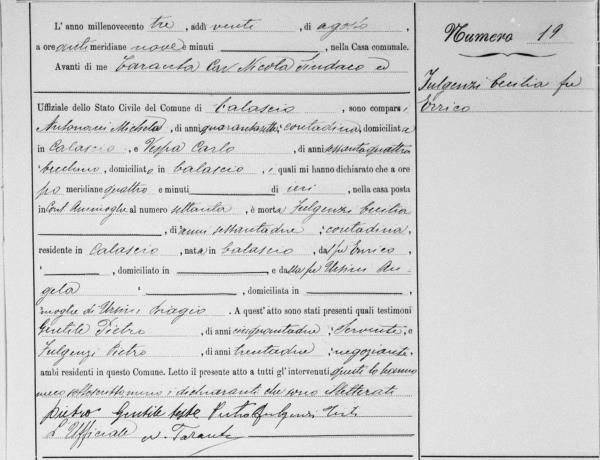 L'anno millenovecento tre, addì venti, di agosto,
a ore anti meridiane nove e minuti , nella Casa comunale.
Avanti di me Taranta Cav Nicola Sindaco ed
Uffiziale dello Stato Civile del Comune di Calascio, sono comparsi
Antonacci Michela, di anni quarantasette; contadina, domiciliata
in Calascio, e Vespa Carlo, di anni sessantaquattro
becchino, domiciliato in Calascio, i quali mi hanno dichiarato che a ore
po meridiane quattro e minuti di ieri, nella casa posta
in al numero settanta, è morta Fulgenzi Cecilia
, di anni sessantadue; contadina,
residente in Calascio, nata in Calascio, da fu Enrico,
, domiciliato in , e da fu Ursini An-
gela , domiciliata in ,
moglie di Ursini Biagio. A quest'atto sono stati presenti quali testimoni
Gentile Pietro, di anni cinquantadue; Serviente, e
Fulgenzi Pietro, di anni trentadue; negoziante,
ambi residenti in questo Comune. Letto il presente atto a tutti gl'intervenuti, questi lo hanno
meco sottoscritto meno i dichiaranti che sono illetterati
Pietro Gentile teste Pietro Fulgenzi teste
L'Ufficiale N. Taranta
Numero 19
Fulgenzi Cecilia fu
Errico